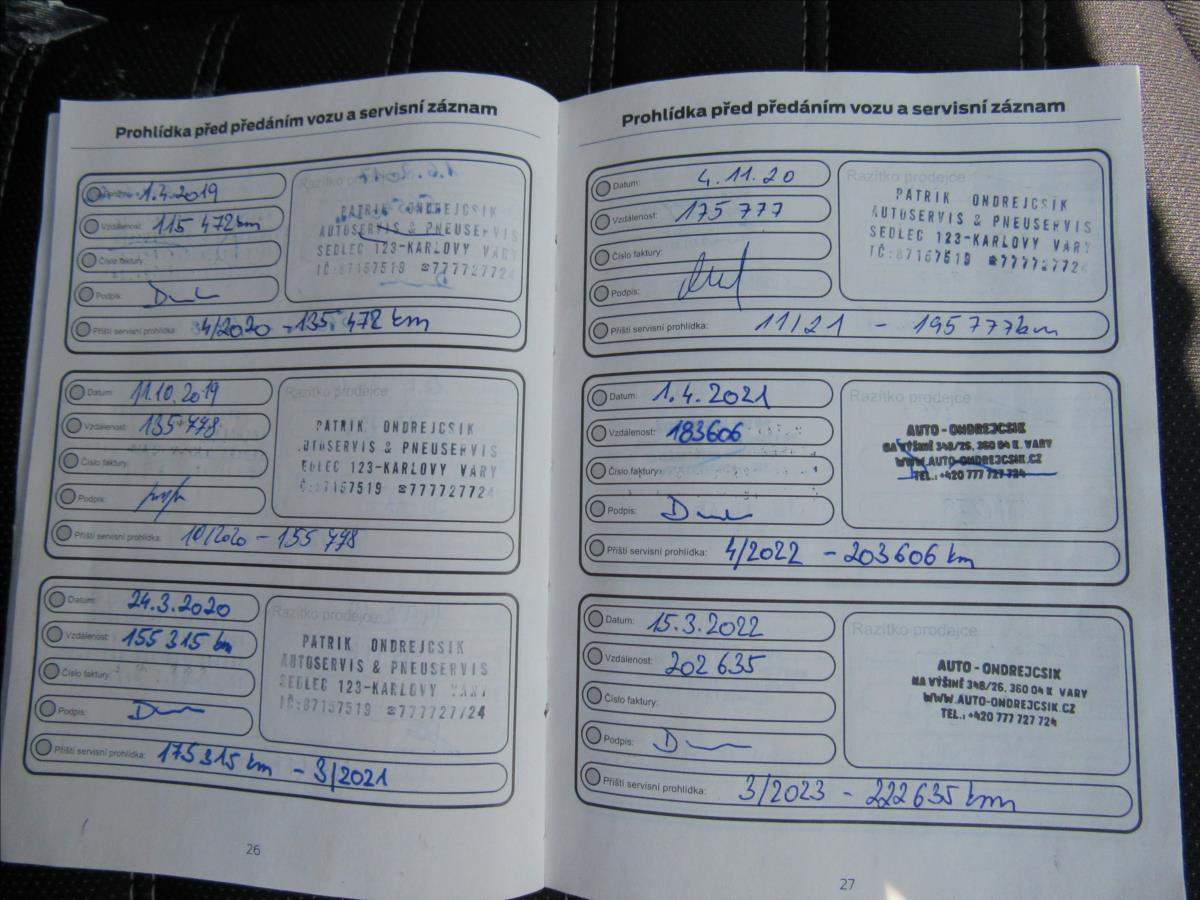 Prohlídka před předáním vozu a servisní záznam
1.4.2019
Vzdálenost: 115 472km
Číslo faktury:
Podpis:
Příští servisní prohlídka: 4/2020 - 135 472 km
Razítko prodejce
PATRIK ONDREJCSIK
AUTOSERVIS & PNEUSERVIS
SEDLEC 123-KARLOVY VARY
IČ:87157519 ☎777727724
Datum: 11.10.2019
Vzdálenost: 135 778
Číslo faktury:
Podpis:
Příští servisní prohlídka: 10/2020 - 155 778
Razítko prodejce
PATRIK ONDREJCSIK
AUTOSERVIS & PNEUSERVIS
SEDLEC 123-KARLOVY VARY
IČ:87157519 ☎777727724
Datum: 24.3.2020
Vzdálenost: 155 315 km
Číslo faktury:
Podpis:
Příští servisní prohlídka: 175315 km - 3/2021
Razítko prodejce
PATRIK ONDREJCSIK
AUTOSERVIS & PNEUSERVIS
SEDLEC 123-KARLOVY VARY
IČ:87157519 ☎777727724
26
Prohlídka před předáním vozu a servisní záznam
Datum: 4.11.20
Vzdálenost: 175 777
Číslo faktury:
Podpis:
Příští servisní prohlídka: 11/21 - 195 777km
Razítko prodejce
PATRIK ONDREJCSIK
AUTOSERVIS & PNEUSERVIS
SEDLEC 123-KARLOVY VARY
IČ:87157519 ☎777727724
Datum: 1.4.2021
Vzdálenost: 183606
Číslo faktury:
Podpis:
Příští servisní prohlídka: 4/2022 - 203606 km
Razítko prodejce
AUTO - ONDREJCSIK
NA VÝŠINĚ 348/26, 360 04 K. VARY
WWW.AUTO-ONDREJCSIK.CZ
TEL.: +420 777 727 724
Datum: 15.3.2022
Vzdálenost: 202 635
Číslo faktury:
Podpis:
Příští servisní prohlídka: 3/2023 - 222 635 km
Razítko prodejce
AUTO - ONDREJCSIK
NA VÝŠINĚ 348/26, 360 04 K. VARY
WWW.AUTO-ONDREJCSIK.CZ
TEL.: +420 777 727 724
27